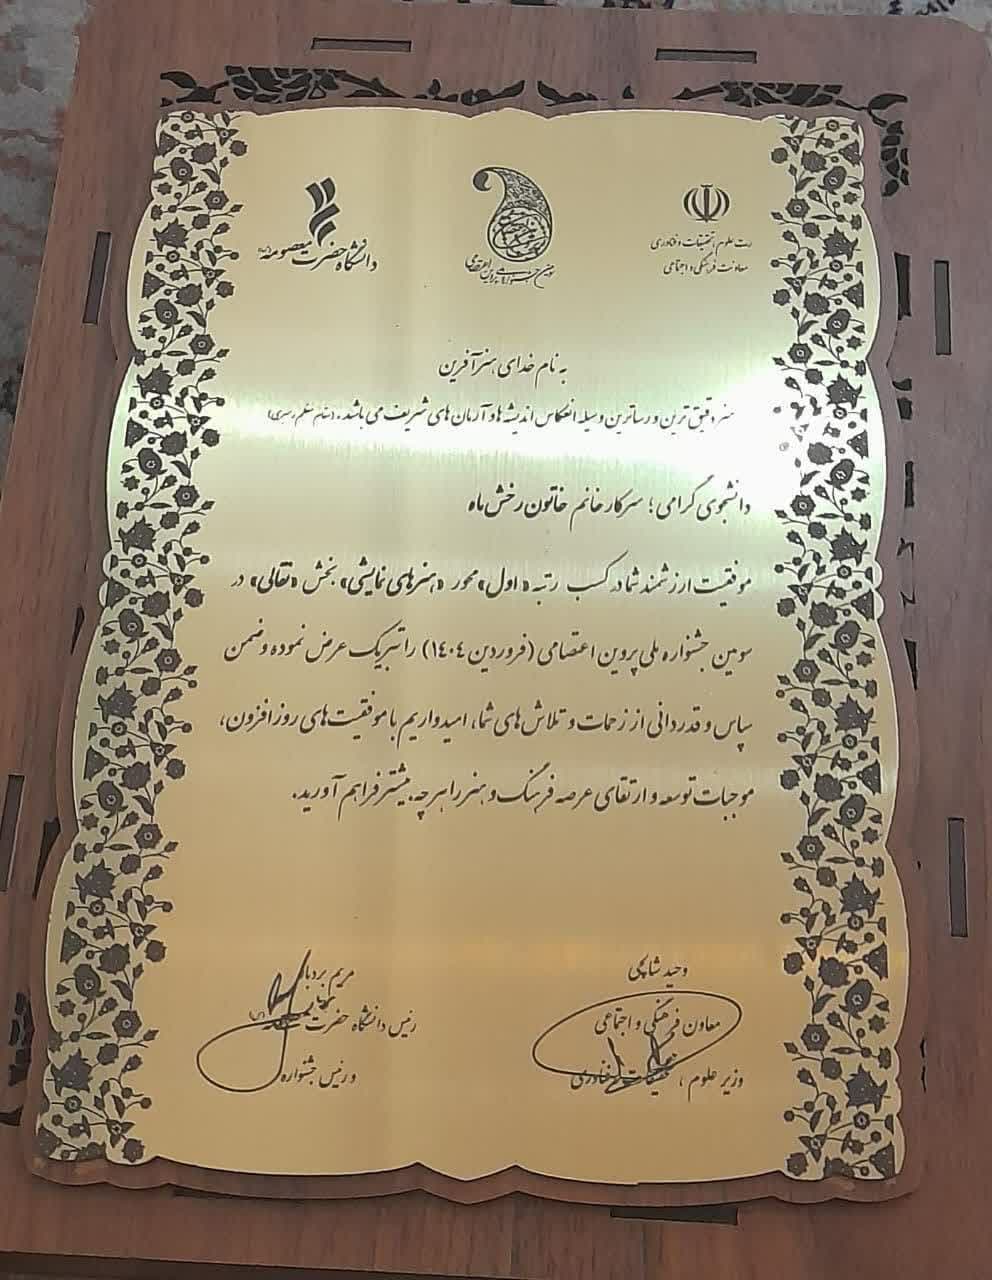 وزارت علوم، تحقیقات و فناوری
معاونت فرهنگی و اجتماعی
سومین جشنواره ملی پروین اعتصامی
دانشگاه حضرت معصومه (س)
به نام خدای هنرآفرین
هنر دقیق ترین و رساترین وسیله انعکاس اندیشه ها و آرمان های شریف می باشد. (مقام معظم رهبری)
دانشجوی گرامی؛ سرکار خانم خاتون رخش ماه
موفقیت ارزشمند شما در کسب رتبه «اول» محور «هنرهای نمایشی» بخش «نقالی» در
سومین جشنواره ملی پروین اعتصامی (فروردین ۱۴۰۴) را تبریک عرض نموده و ضمن
سپاس و قدردانی از زحمات و تلاش های شما، امیدواریم با موفقیت های روز افزون،
موجبات توسعه و ارتقای عرصه فرهنگ و هنر را هرچه بیشتر فراهم آورید.
وحید شالچی
معاون فرهنگی و اجتماعی
وزیر علوم، تحقیقات و فناوری
مریم بردبار
رئیس دانشگاه حضرت معصومه (س)
و رئیس جشنواره